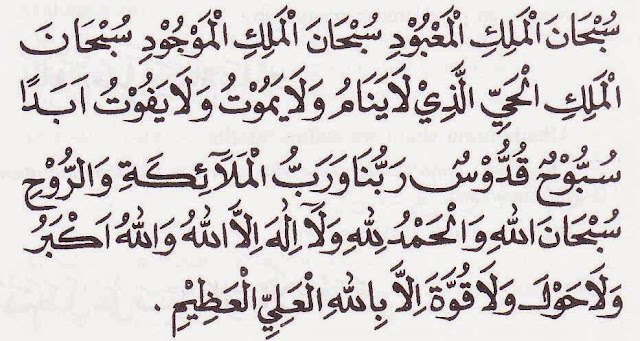 سُبْحَانَ الْمَلِكِ الْمَعْبُوْدِ سُبْحَانَ الْمَلِكِ الْمَوْجُوْدِ سُبْحَانَ
الْمَلِكِ الْحَيِّ الَّذِيْ لَا يَنَامُ وَلَا يَمُوْتُ وَلَا يَفُوْتُ اَبَدًا
سُبُّوْحٌ قُدُّوْسٌ رَبُّنَا وَرَبُّ الْمَلَآئِكَةِ وَالرُّوْحِ
سُبْحَانَ اللهِ وَالْحَمْدُ لِلّٰهِ وَلَآ اِلٰهَ اِلَّا اللهُ وَاللهُ اَكْبَرُ
وَلَا حَوْلَ وَلَا قُوَّةَ اِلَّا بِاللهِ الْعَلِيِّ الْعَظِيْمِ .